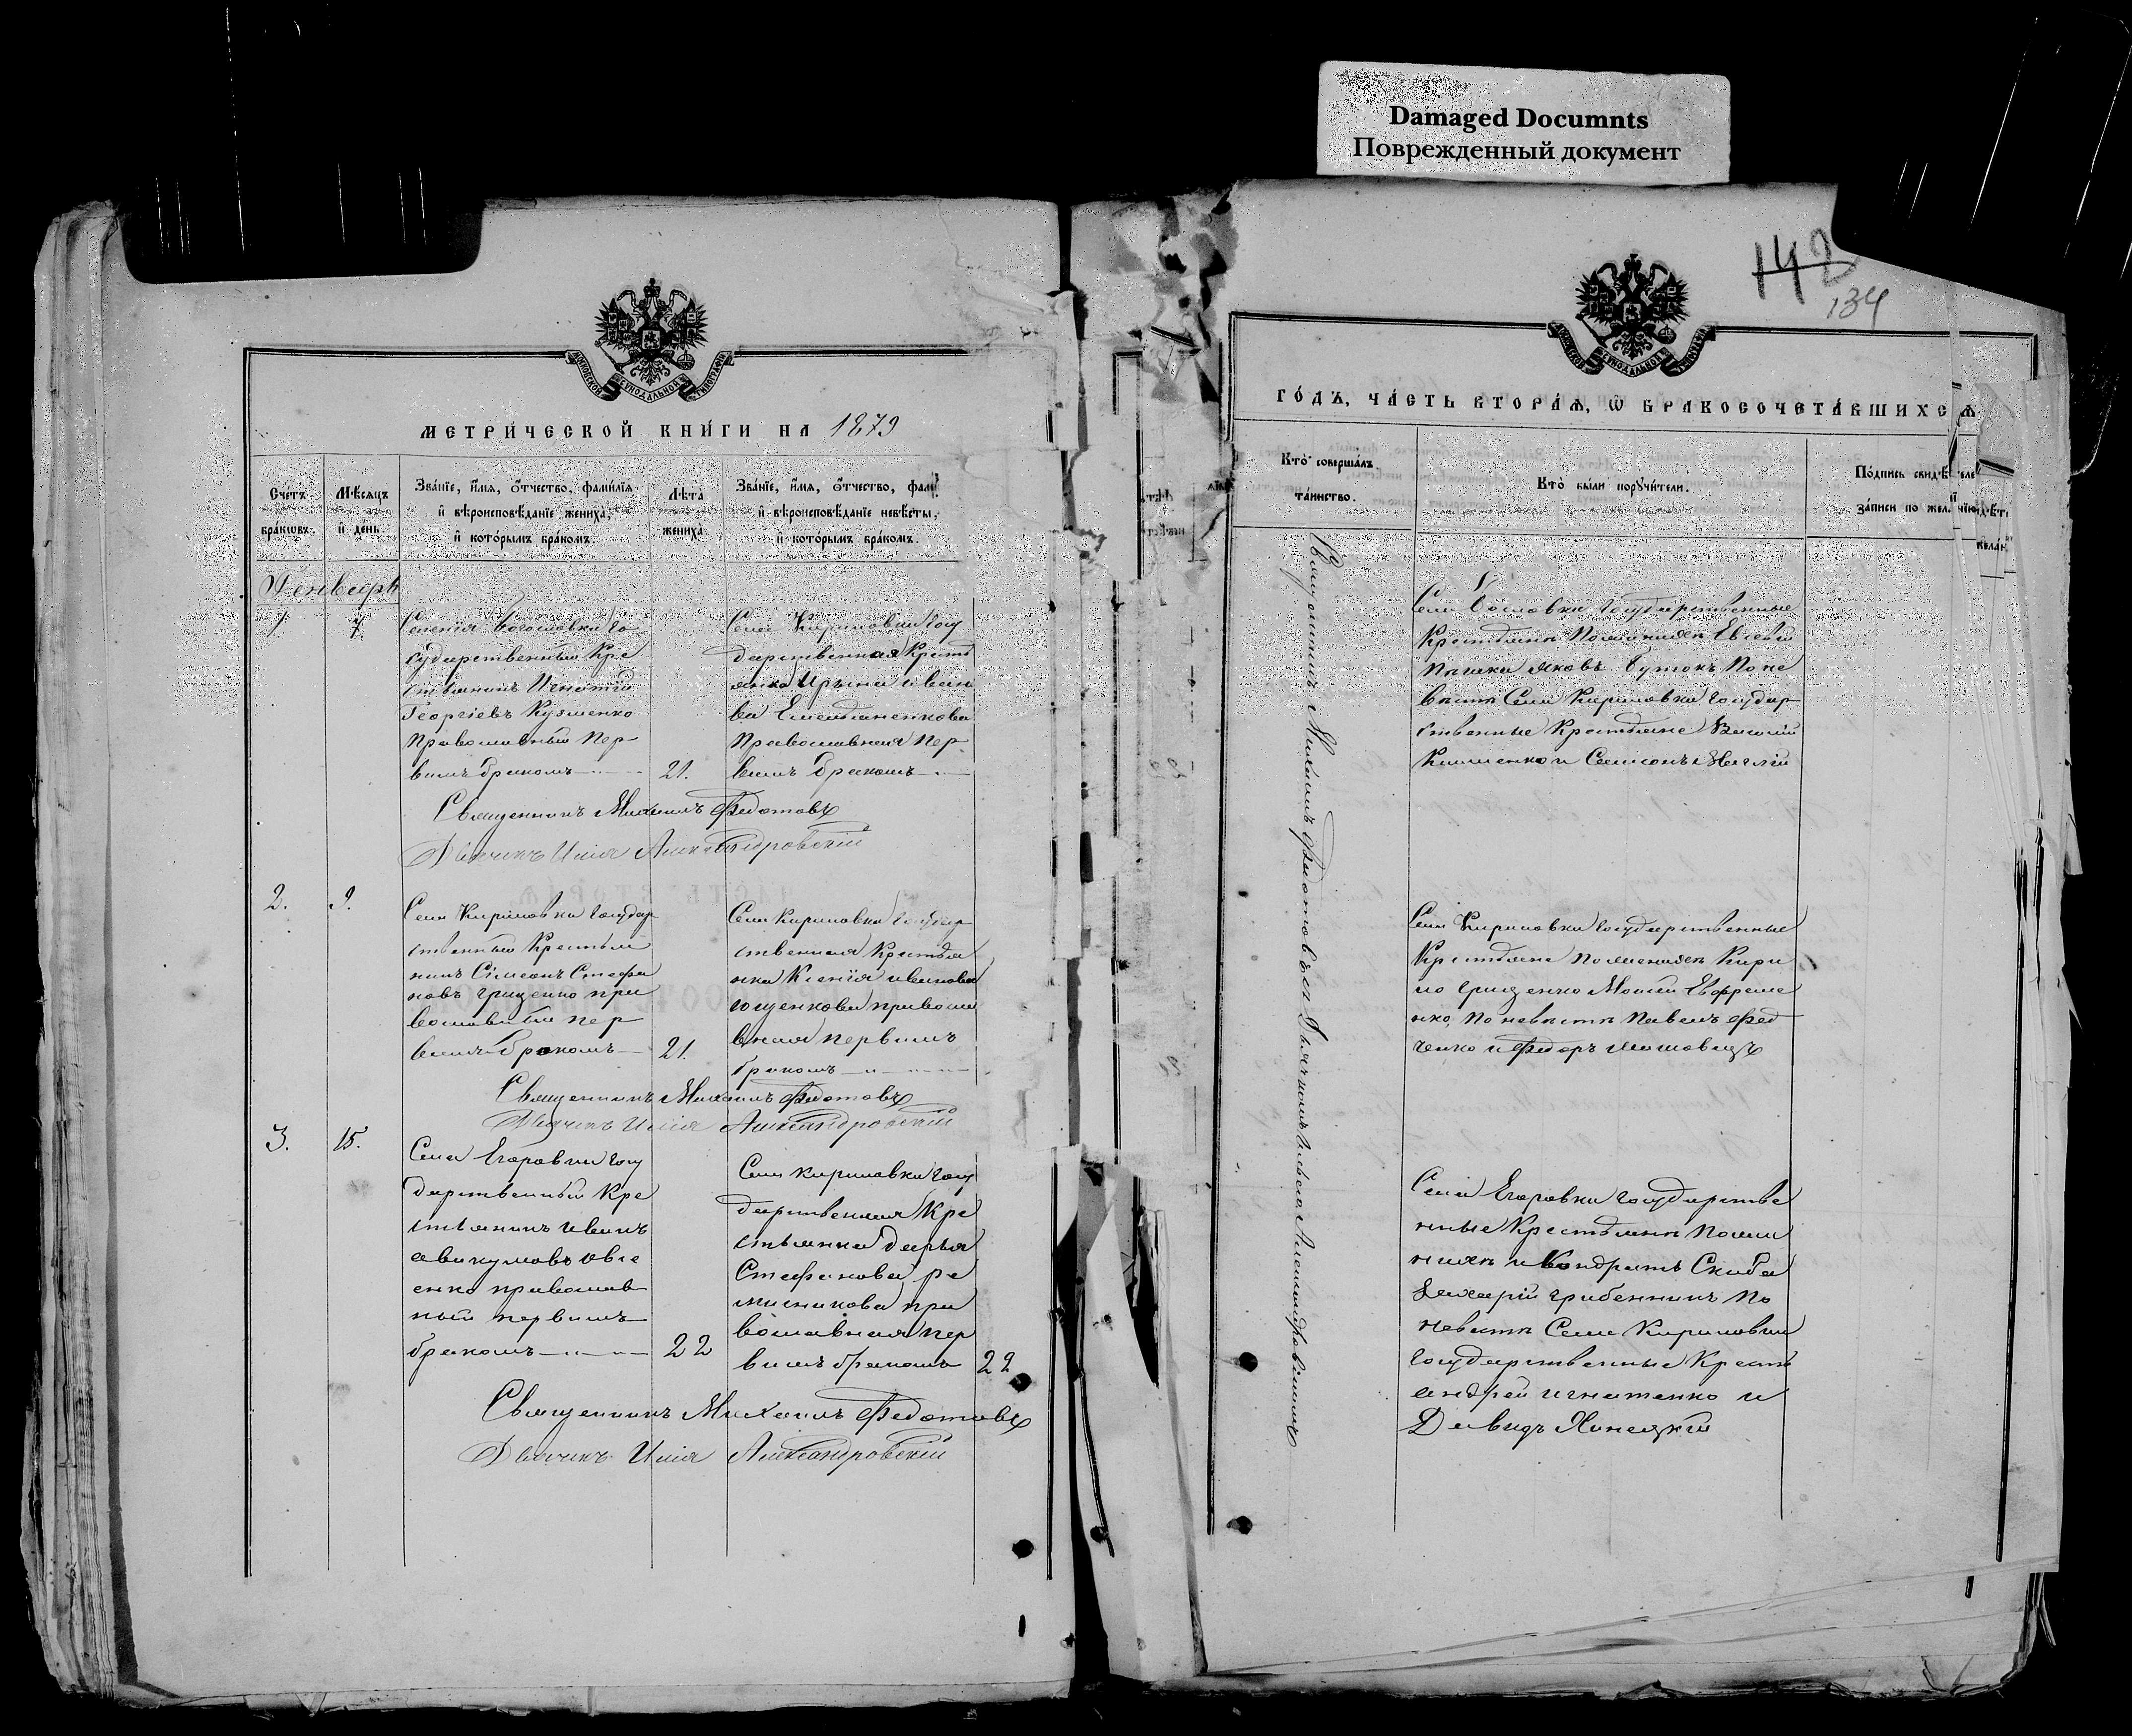 Damaged Documnts
Поврежденный документ
142
134
МЕТРИ́ЧЕСКОЙ КНИ́ГИ НА 1879
ГО́ДЪ, ЧА́СТЬ ВТОРА́Ѧ, Ѿ БРАКОСОЧЕТА́ВШИХСѦ
Сче́тъ
бра́кѡвъ.
Мѣ́сяцъ
и҆ де́нь.
Зва́нїе, и҆́мѧ, ѻ҆́тчество, фами́лїѧ
и҆ вѣроисповѣ́данїе жениха̀,
и҆ кото́рымъ бра́комъ.
Лѣ́та
жениха̀
Зва́нїе, и҆́мѧ, ѻ҆́тчество, фами
и҆ вѣроисповѣ́данїе невѣ́сты,
и҆ кото́рымъ бра́комъ.
Кто̀ соверша́лъ
та́инство.
Кто̀ бы́ли порꙋчи́тели.
По́дпись свидѣ́теле
за́писи по жела́нїю
Генварь
1.
7.
Государственный Кре
стьянинъ Игнатій
Георгіевъ Кузменко
Православный пер
вымъ бракомъ
21.
Села Кириловки Госу
дарственная Кресть
янка Ирына Иван
ва Емельяненкова
Православная пер
вымъ бракомъ
Священникъ Михаилъ Федотовъ
Дьячикъ Илія Александровскій
2.
9.
Села Кириловки Государ
ственный Крестья
нинъ Сімеонъ Стефа
новъ Гриценко пра
вославный пер
вымъ бракомъ
21.
Села Кириловки Государ
ственная Крестья
нка Ксенія Иванова
православ
вная первымъ
бракомъ
Священникъ Михаилъ Федотовъ
Дьячикъ Илія Александровскій
3.
15.
Села Егоровки Госу
дарственный Кре
стьянинъ Иванъ
Авакумовъ Овсі
енко православ
ный первымъ
бракомъ
22
Села Кириловки Госу
дарственная Кре
стьянка Дарья
Стефанова ре
мисникова пра
вославная пер
вымъ бракомъ
22
Священникъ Михаилъ Федотовъ
Дьячикъ Илія Александровскій
Священникъ Михаилъ Федотовъ съ Дьячкомъ Иліею Александровскимъ
Государственные
Крестьяне По женихѣ Евсевій
Яковъ Бутокъ По не
вѣстѣ Села Кириловки Государ
ственные Крестьяне Василій
Клименко и Самсонъ
Села Кириловки Государственные
Крестьяне По женихѣ Кири
ло Гриценко Моисей Евфреме
нко, По невѣстѣ Павелъ Фед
ченко и Федоръ
Села Егоровки Государстве
нные Крестьяне По жен
нихѣ Кондратъ Скиба
Захарій Грибенникъ По
невѣстѣ Села Кириловки
Государственные Кресть
Андрей Игнатенко и
Давидъ